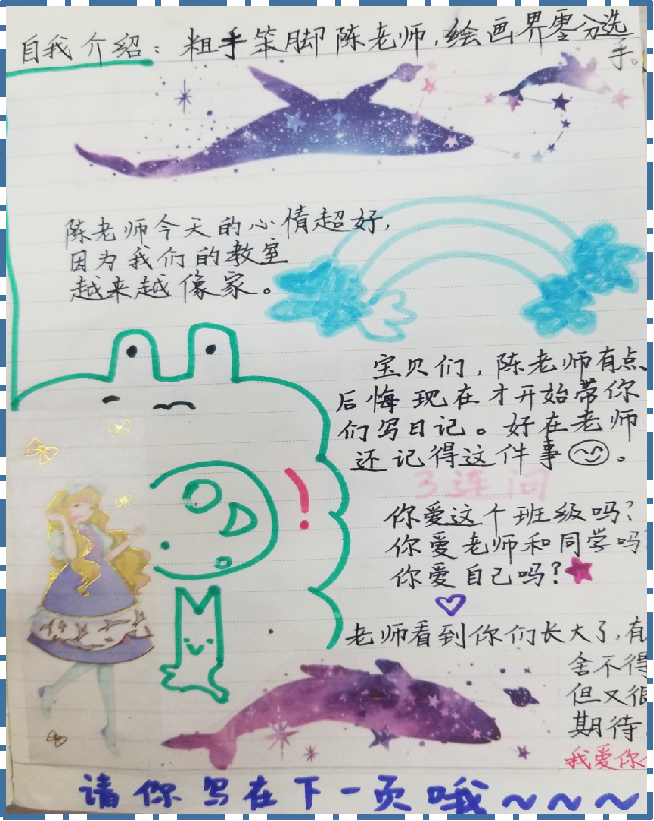 自我介绍：粗手笨脚陈老师，绘画界零分选
手。
陈老师今天的心情超好，
因为我们的教室
越来越像家。
宝贝们，陈老师有点
后悔现在才开始带你
们写日记。好在老师
还记得这件事。
3连问
你爱这个班级吗？
你爱老师和同学吗？
你爱自己吗？
老师看到你们长大了，有
舍不得
但又很
期待
我爱你
请你写在下一页哦～～～